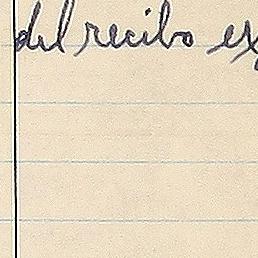 del recibo